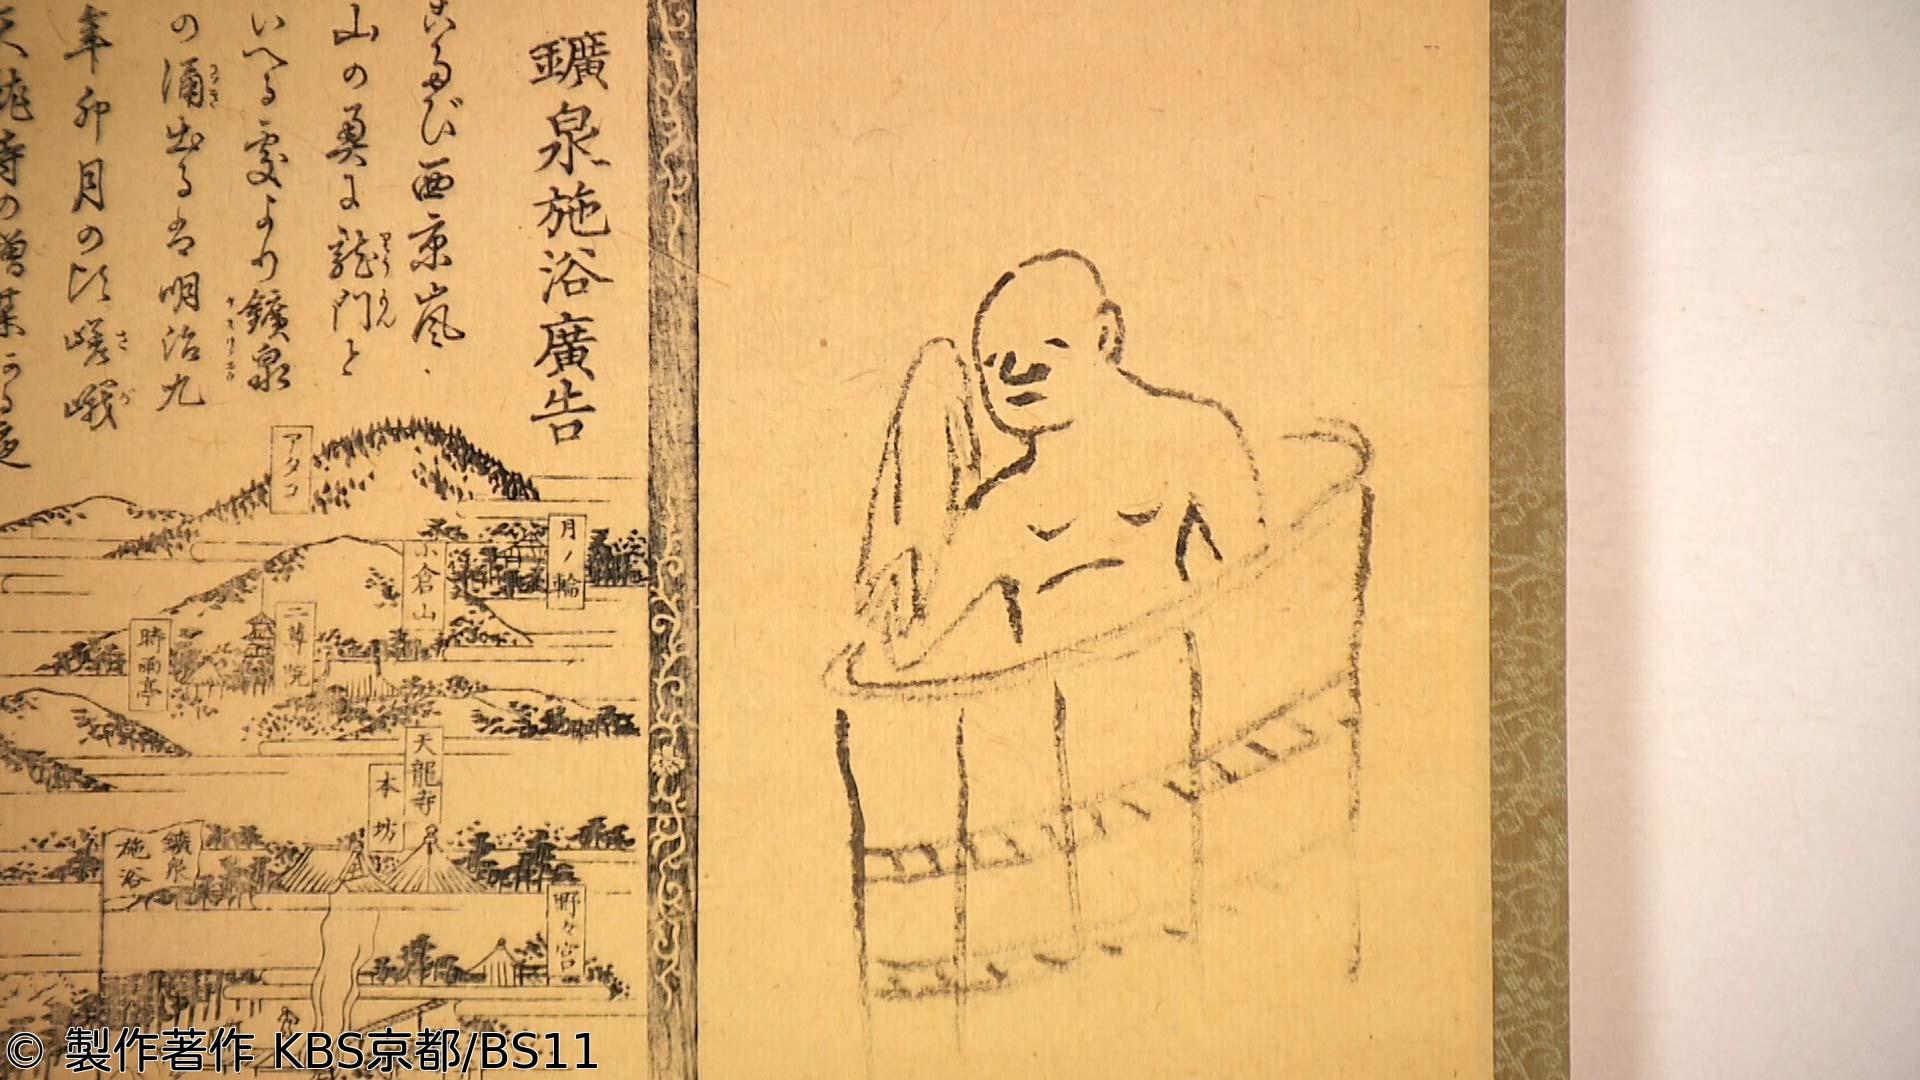 鑛泉施浴廣告
こゝより西京嵐
山の奥に龍門と
りうもん
いへる處より鑛泉
の涌出る者明治九
わき
年卯月の頃嵯峨
さが
アタコ
月ノ輪
小倉山
二尊院
時雨亭
天龍寺
本坊
鑛泉
施浴
野々宮
© 製作著作 KBS京都/BS11